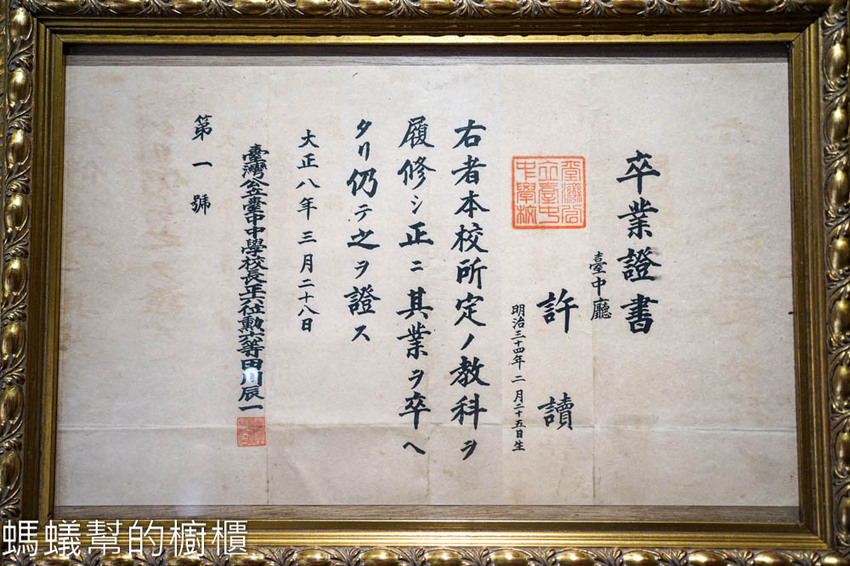 卒業證書
臺中廳
許讀
明治三十四年二月二十五日生
臺灣公
立臺中
中學校
右者本校所定ノ教科ヲ
履修シ正ニ其業ヲ卒ヘ
タリ仍テ之ヲ證ス
大正八年三月二十八日
臺灣公立臺中中學校長正六位勲六等田川辰一
第一號
螞蟻幫的櫥櫃